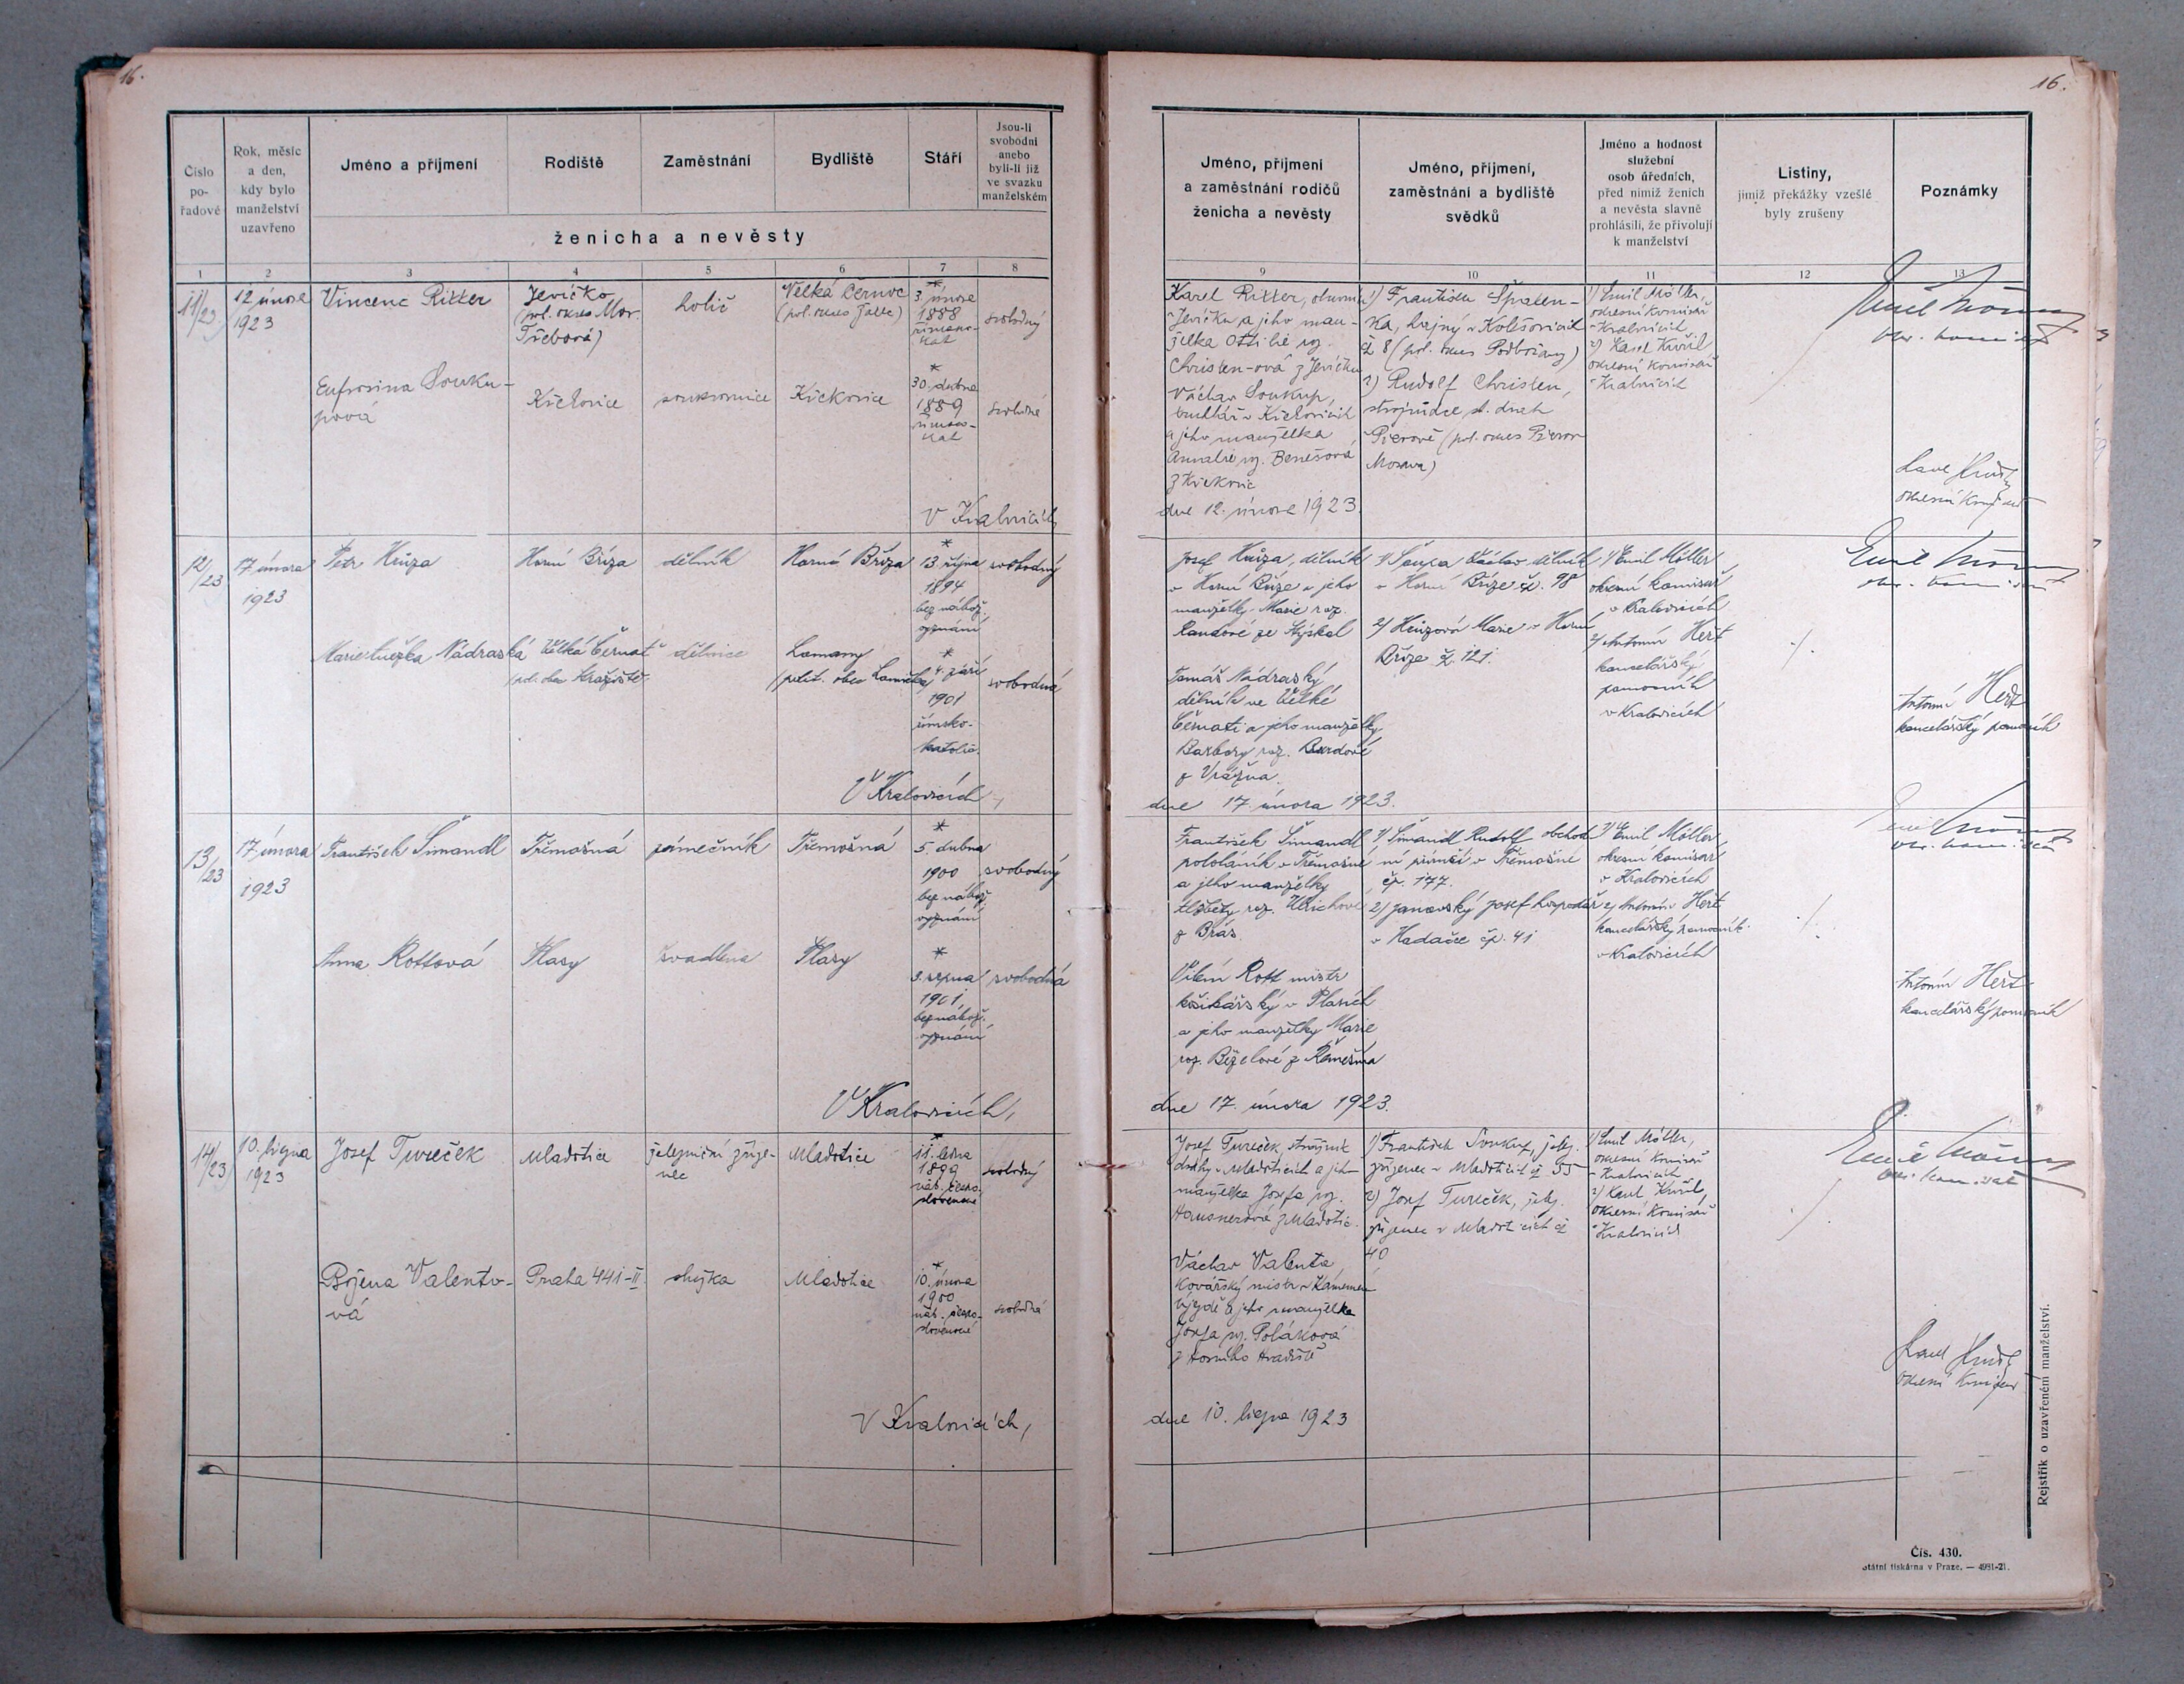 16.
Číslo
po-
řadové
Rok, měsíc
a den,
kdy bylo
manželství
uzavřeno
Jméno a příjmení
Rodiště
Zaměstnání
Bydliště
Stáří
Jsou-li
svobodni
anebo
byli-li již
ve svazku
manželském
ženicha a nevěsty
1 2 3 4 5 6 7 8
11/23
12 února
1923
Vincenc Ritter
Jevíčko
(pol. okres Mor.
Třebová)
holič
Velká Černoc
(pol. okres Žatec)
*
3. února
1888
římsko-
kat
svobodný
Eufrosina Souku-
pová
Kříčkovice
soukromnice
Kříčkovice
*
30. dubna
1889
římsko-
kat
svobodná
V Kralovicích
12/23
17 února
1923
Petr Hrůza
Horní Bříza
dělník
Horní Bříza
*
13. října
1894
bez nábož.
vyznání
svobodný
Marie Anežka Nádraská
Velká Černať
dělnice
Lomany
*
4. září
1901
římsko-
katolic.
svobodná
V Kralovicích,
13/23
17. února
1923
František Šimandl
Třemošná
zámečník
Třemošná
*
5. dubna
1900
bez nábož.
vyznání
svobodný
Anna Rottová
Plasy
švadlena
Plasy
*
3. srpna
1901
bez nábož.
vyznání
svobodná
V Kralovicích,
14/23
10. srpna
1923
Josef Tureček
Mladotice
železniční zříze-
nec
Mladotice
*
11. ledna
1899
náb. česko-
slovenské
svobodný
Božena Valento-
vá
Praha 441-II.
služka
Mladotice
*
10. února
1900
náb. česko-
slovenské
svobodná
V Kralovicích,
16.
Jméno, příjmení
a zaměstnání rodičů
ženicha a nevěsty
Jméno, příjmení,
zaměstnání a bydliště
svědků
Jméno a hodnost
služební
osob úředních,
před nimiž ženich
a nevěsta slavně
prohlásili, že přivolují
k manželství
Listiny,
jimiž překážky vzešlé
byly zrušeny
Poznámky
9 10 11 12 13
Karel Ritter,
Jevíčku a jeho man-
želka Ottilie roz.
Christen-ová z Jevíčka
Václav Soukup,
truhlář v Kříčkovicích
a jeho manželka
Amalie roz. Benešová
z Kříčkovic
dne 12. února 1923.
1) František Špalen-
ka, hajný v Kolešovicích
čp 8 (pol. okres Podbořany)
2) Rudolf Christen,
strojvůdce st. drah
Přerově (pol. okres Přerov
Morava)
1) Emil Möller,
okresní komisař
v Kralovicích
2) Karel
okresní komisař
v Kralovicích
okresní komisař
Josef Hrůza, dělník
v Horní Bříze a jeho
manželky Marie roz.
Tomáš Nádraský
dělník ve Velké
Černati a jeho manželky
Barbory roz.
z Vrážna.
dne 17. února 1923.
1) Václav dělník
v Horní Bříze čp. 98
2) Hrůzová Marie v Horní
Bříze čp. 121.
1) Emil Möller
okresní komisař
v Kralovicích
2) Antonín Heřt
kancelářský
pomocník
v Kralovicích
./.
Antonín Heřt
kancelářský pomocník
František Šimandl
v Třemošné
a jeho manželky
Alžběty roz. Ulrichové
z Břas.
Vilém Rott mistr
košíkářský v Plasích
a jeho manželky Marie
roz.
dne 17. února 1923.
1) Šimandl Rudolf obchod
ní příručí v Třemošné
čp. 177.
2) Janovský Josef hospodář
v Hadačce čp. 41
1) Emil Möller
okresní komisař
v Kralovicích
2) Antonín Heřt
kancelářský pomocník
v Kralovicích
./.
Antonín Heřt
kancelářský pomocník
Josef Tureček,
dráhy v Mladoticích a jeho
manželka Josefa roz.
Hausnerová z Mladotic.
Václav Valenta
kovářský mistr v Kamenném
Újezdě a jeho manželka
Josefa roz. Poláková
z Horního Hradiště
dne 10. srpna 1923
1) František Soukup,želez.
zřízenec v Mladoticích čp 55
2) Josef Tureček, želez.
zřízenec v Mladoticích čp
40
1) Emil Möller,
okresní komisař
v Kralovicích
2) Karel
okresní komisař
v Kralovicích
./.
okresní komisař
Rejstřík o uzavřeném manželství.
Čís. 430.
Státní tiskárna v Praze. — 4931-21.